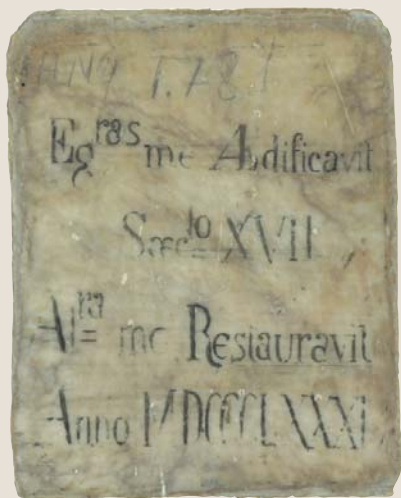 Eg^ras me Ædificavit
Sæc^lo XVII
Al^ra me Restauravit
Anno MDCCCLXXXI